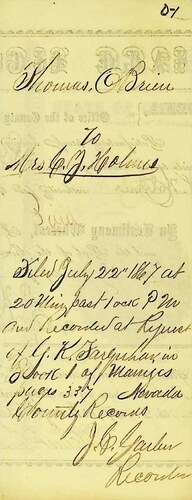 D1
Thomas. O Brien
to
Mrs C. J. Holmes
Filed July 22nd 1867 at
20 Min past 1 ock P M
and Recorded at Request
of G. K. Farquhar in
Book 1 of Marriages
pages 337 Nevada
County Records
Recorder